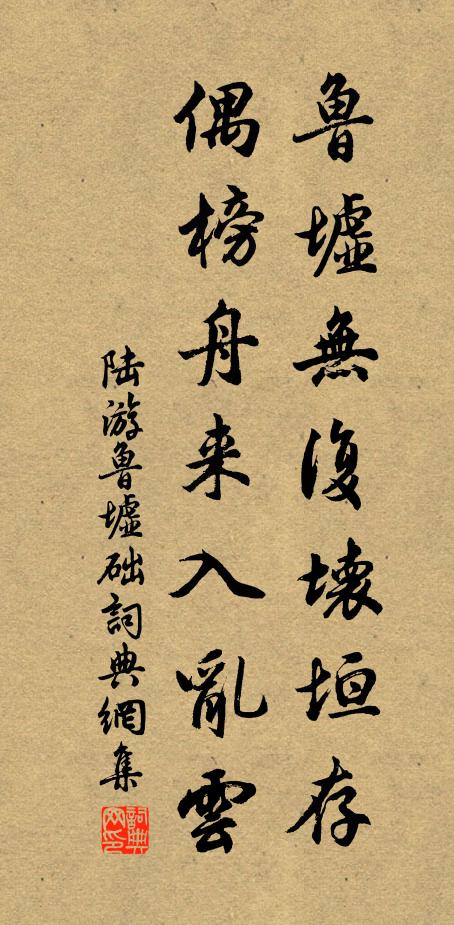 魯墟無復壞垣存
偶榜舟来入亂雲
陆游魯墟础詞典網集
詞典網印